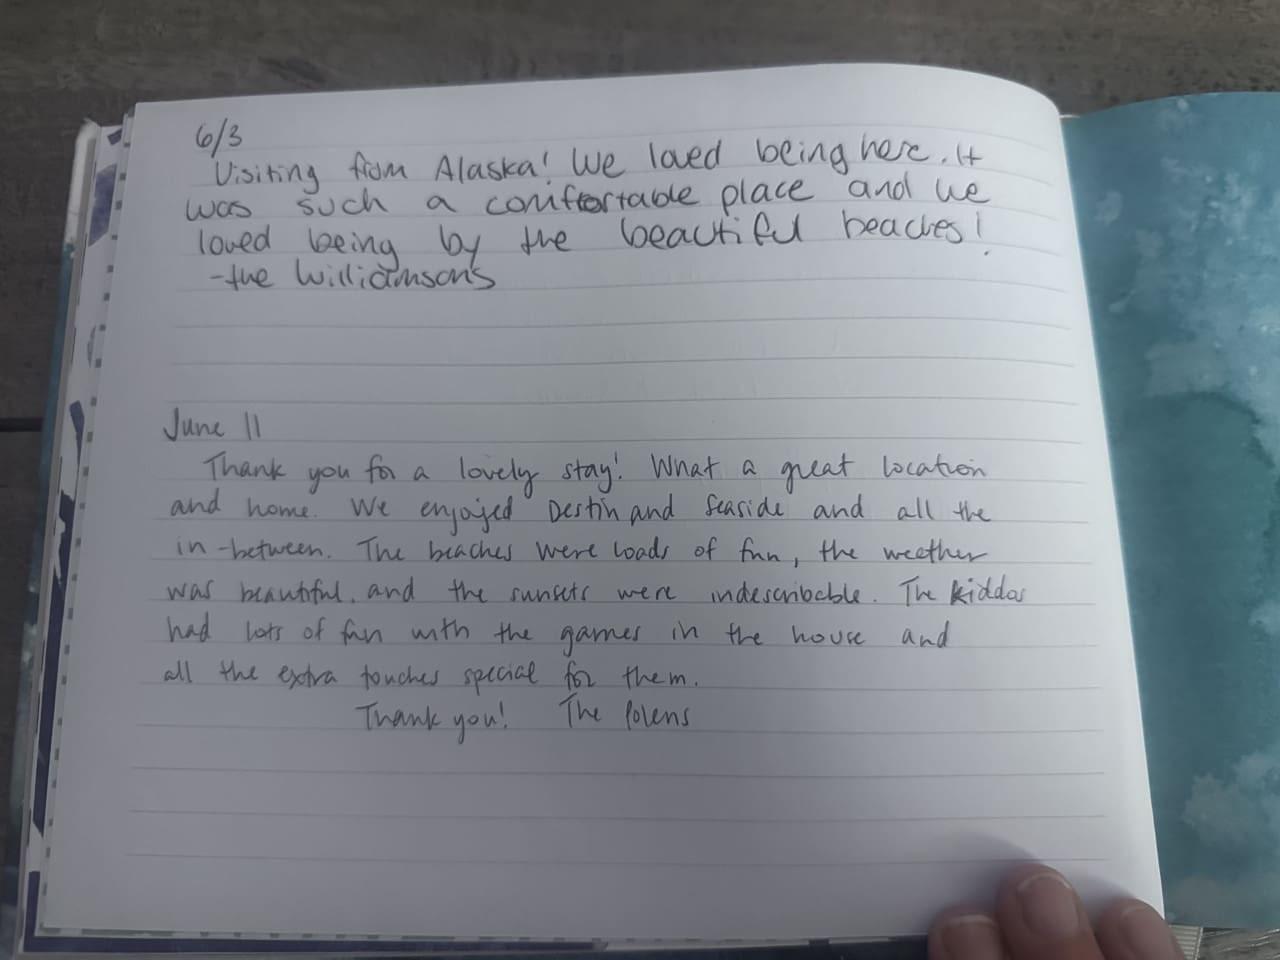 6/3
Visiting from Alaska! We loved being here. It
was such a comfortable place and we
loved being by the beautiful beaches!
-the Williamsons
June 11
Thank you for a lovely stay! What a great location
and home. We enjoyed Destin and Seaside and all the
in-between. The beaches were loads of fun, the weather
was beautiful, and the sunsets were indescribable. The kiddos
had lots of fun with the games in the house and
all the extra touches special for them.
Thank you! The Polens